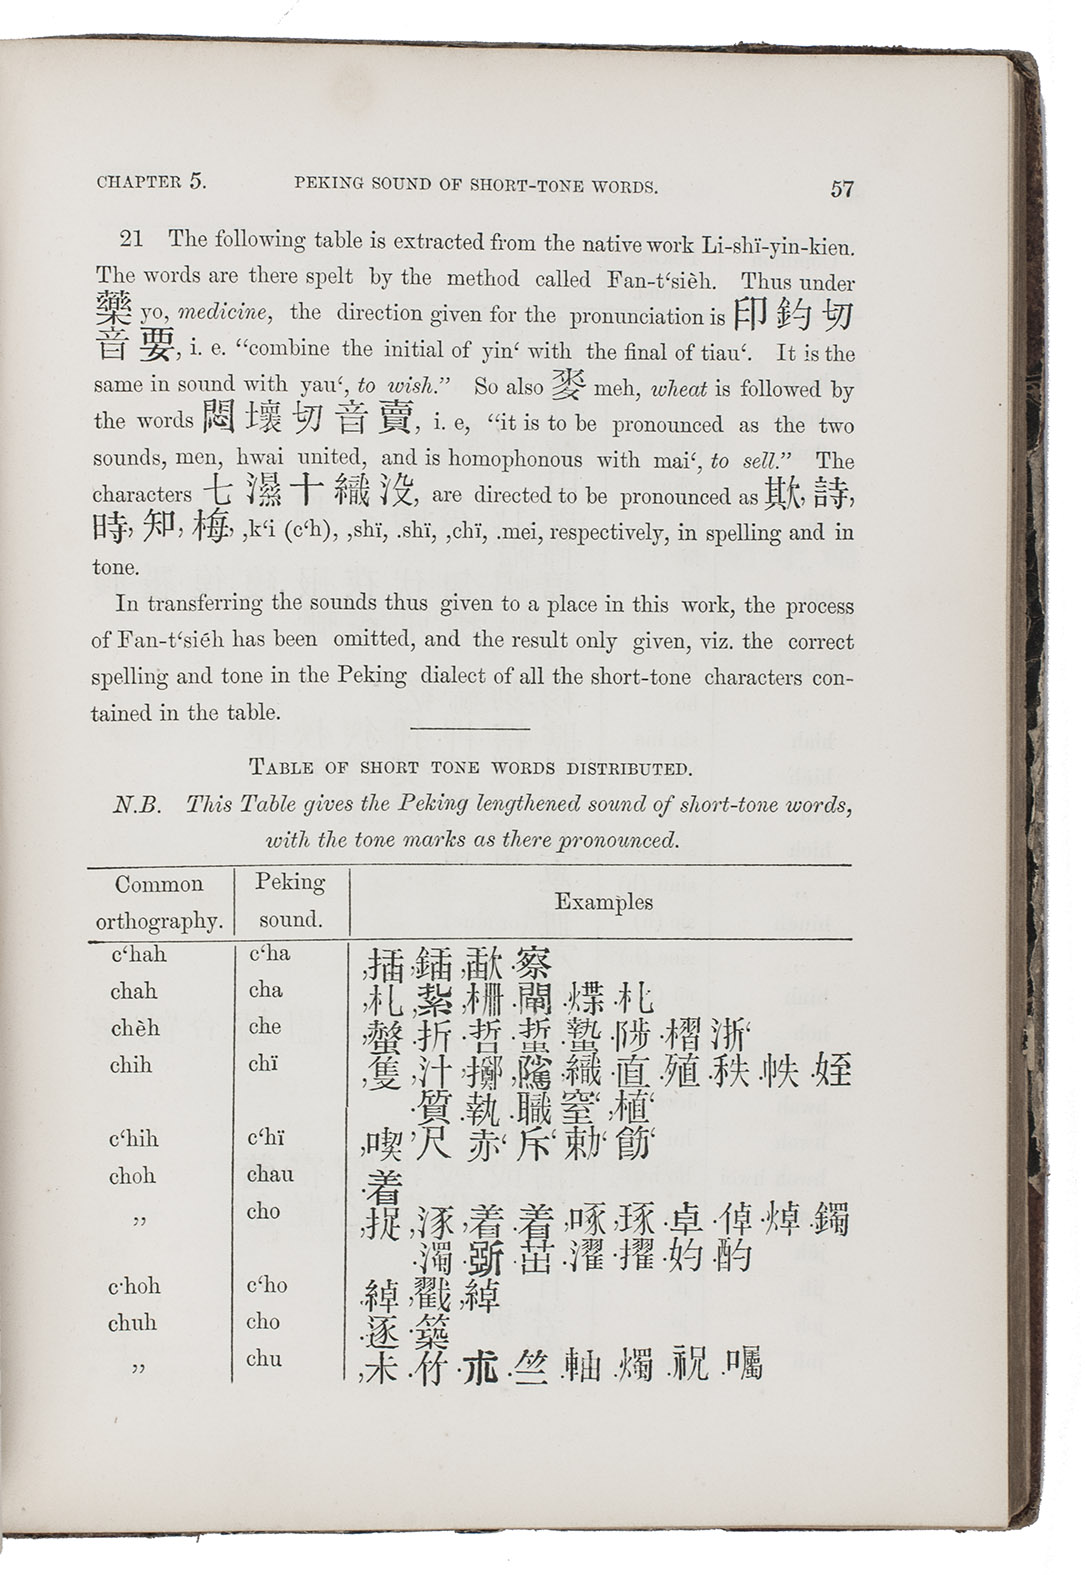 CHAPTER 5. PEKING SOUND OF SHORT-TONE WORDS. 57
21 The following table is extracted from the native work Li-shï-yin-kien.
The words are there spelt by the method called Fan-t‘sièh. Thus under
藥 yo, medicine, the direction given for the pronunciation is 印 釣 切
音 要, i. e. “combine the initial of yin‘ with the final of tiau‘. It is the
same in sound with yau‘, to wish.” So also 麥 meh, wheat is followed by
the words 悶 壞 切 音 賣, i. e, “it is to be pronounced as the two
sounds, men, hwai united, and is homophonous with mai‘, to sell.” The
characters 七 濕 十 織 没, are directed to be pronounced as 欺, 詩,
時, 知, 梅, ,k‘i (c‘h), ,shï, .shï, ,chï, .mei, respectively, in spelling and in
tone.
In transferring the sounds thus given to a place in this work, the process
of Fan-t‘siéh has been omitted, and the result only given, viz. the correct
spelling and tone in the Peking dialect of all the short-tone characters con-
tained in the table.
TABLE OF SHORT TONE WORDS DISTRIBUTED.
N.B. This Table gives the Peking lengthened sound of short-tone words,
with the tone marks as there pronounced.
Common orthography. Peking sound. Examples
c‘hah c‘ha ,插 ,鍤 ,歃 .察
chah cha ,札 ,紮 ,柵 .閘 .煠 .札
chèh che ,螫 .折 .哲 .蜇 .蟄 .陟 .櫂 浙‘
chih chï ,隻 ,汁 ,擲 ,騭 .織 .直 .殖 .秩 .帙 .姪
.質 .執 .職 窒‘ ,植‘
c‘hih c‘hï ,喫 ’尺 赤‘ 斥‘ 勅‘ 飭‘
choh chau .着
„ cho ,捉 ,涿 ,着 .着 ,啄 ,琢 .卓 .倬 .焯 .鐲
.濁 .斲 .茁 .濯 .擢 .妁 .酌
c·hoh c‘ho ,綽 ,戳 ,綽
chuh cho .逐 .築
„ chu ,未 .竹 .朮 .竺 .軸 .燭 .祝 .囑